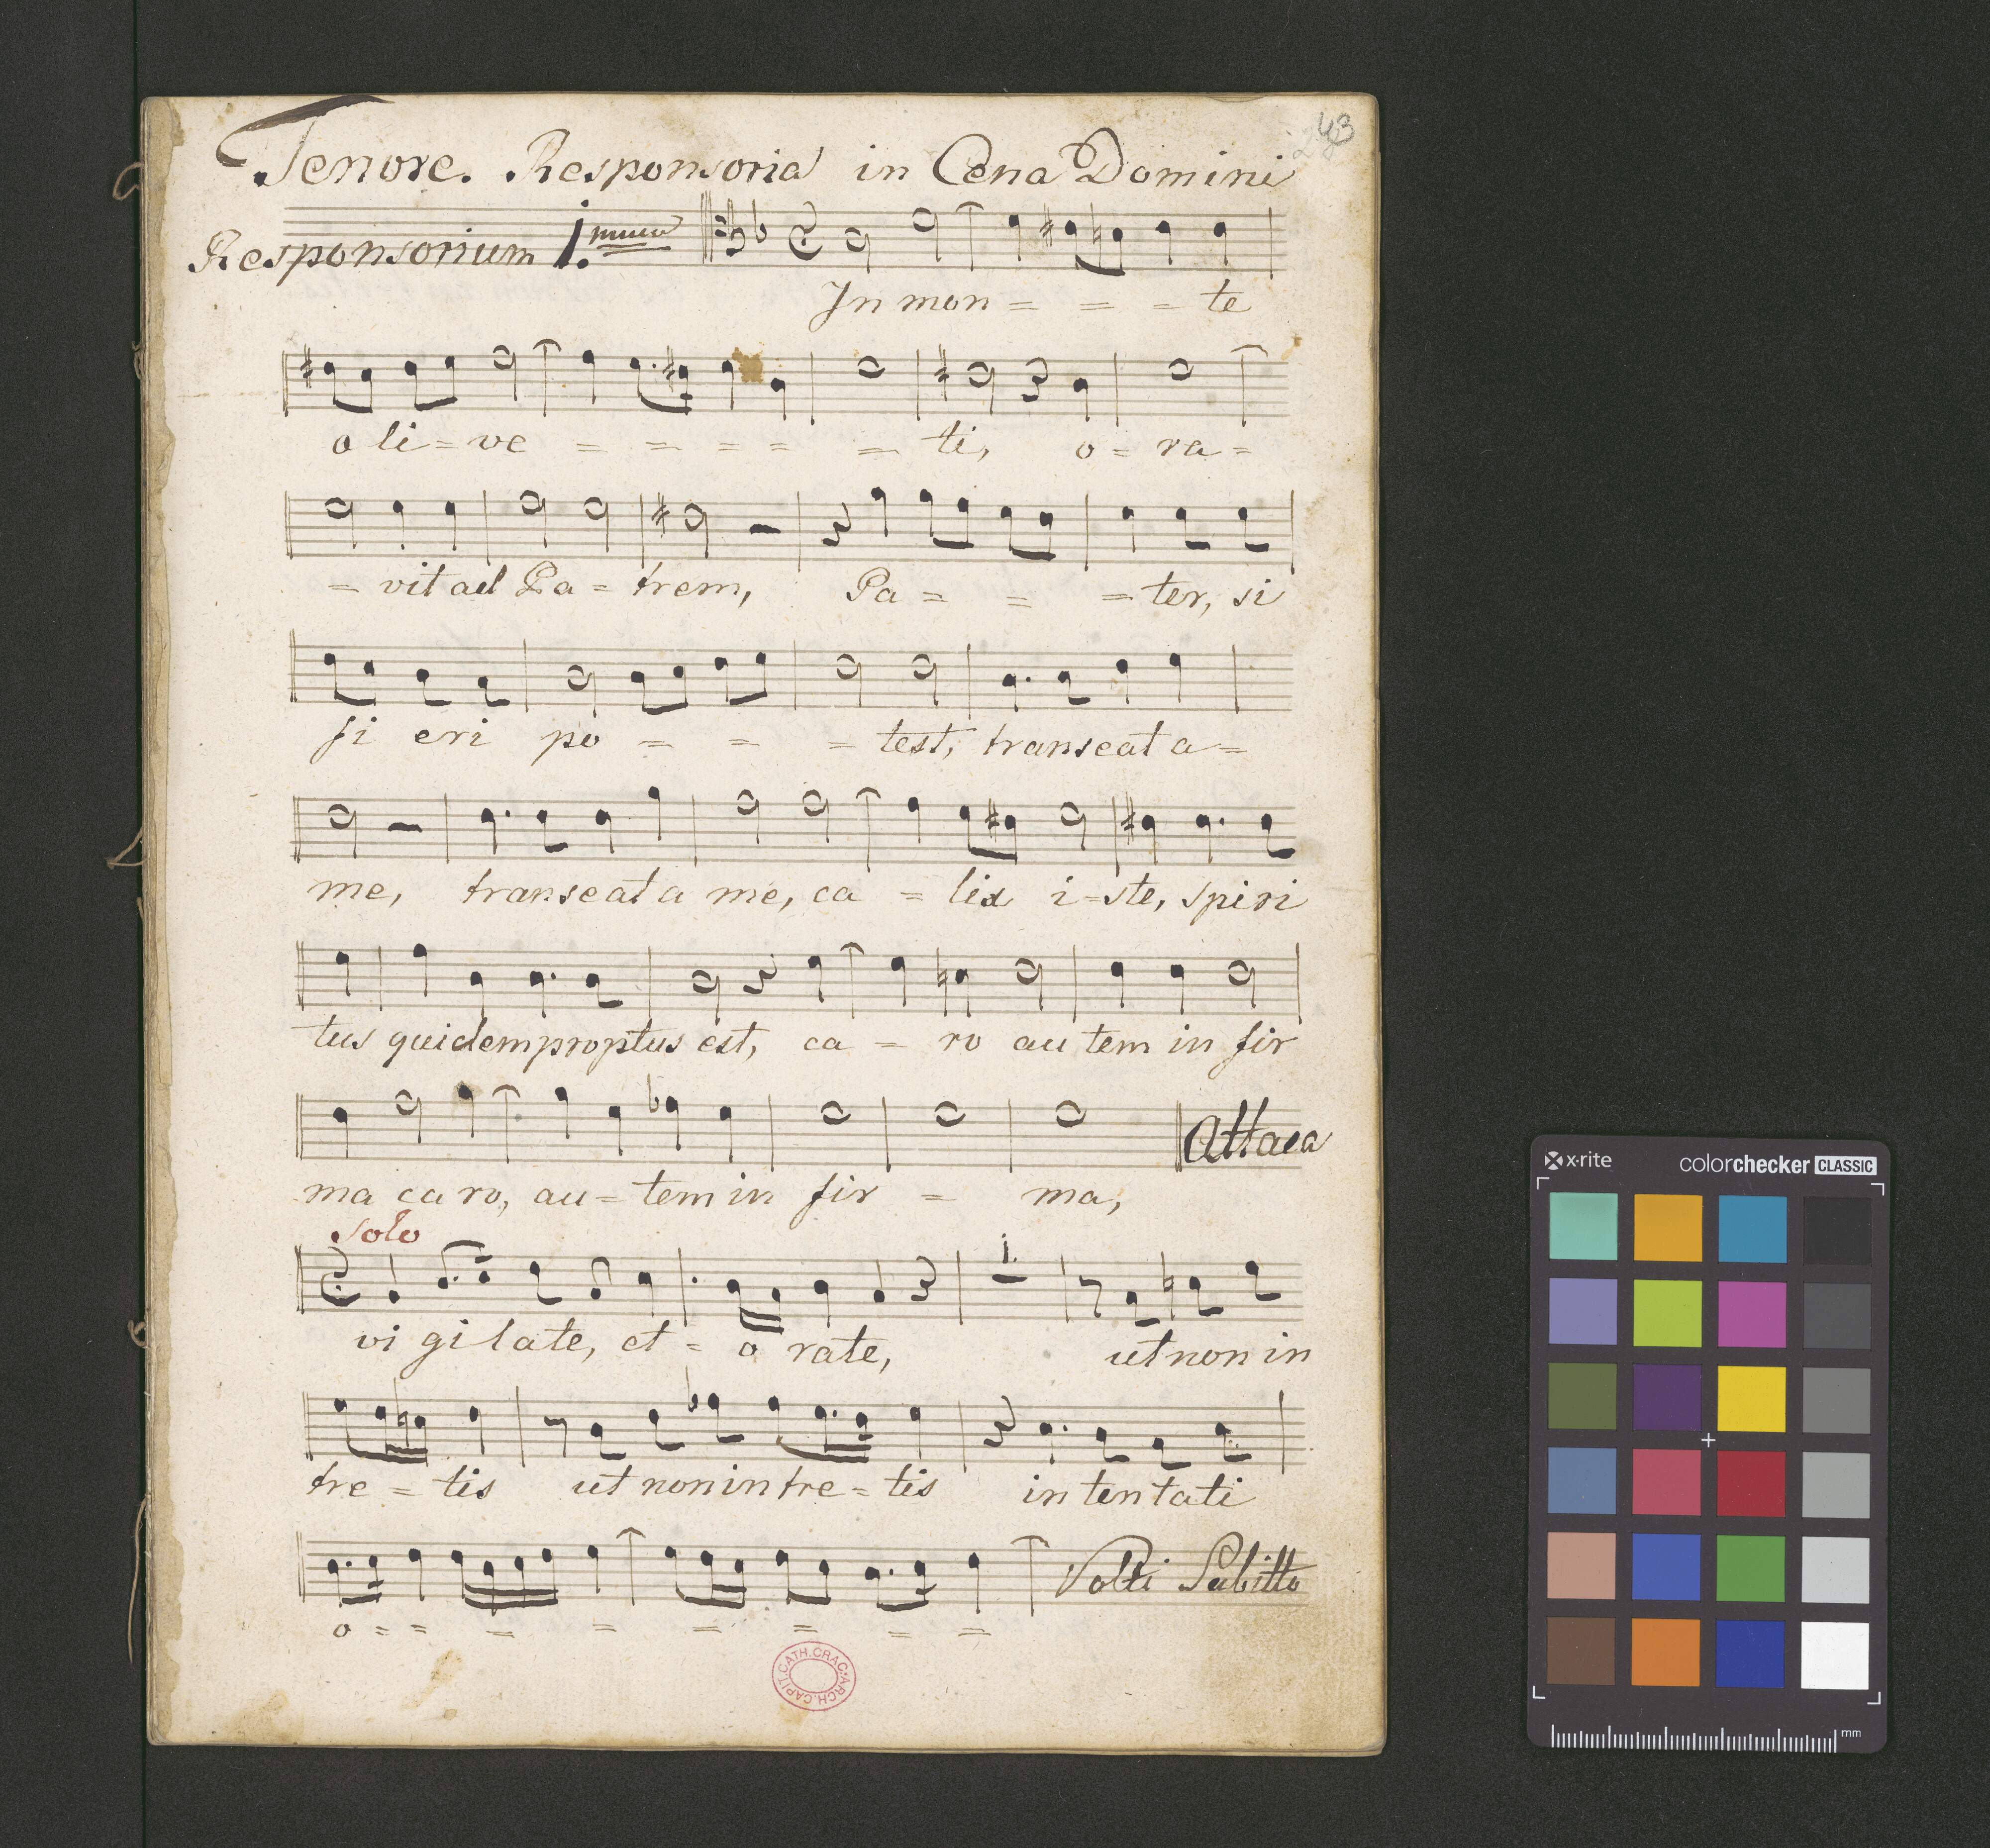 243
Tenore. Responsoria in Cena Domini
Responsorium 1.mum
In mon = = = te
o li = ve = = = = = ti, o = ra =
= vit ad Pa = trem, Pa = = = ter, si
fi eri po = = = test, transeat a =
me, transeat a me, ca = lix i = ste, spiri
tus quidem proptus est, ca = ro au tem in fir
ma ca ro, au = tem in fir = ma,
Attaca
Solo
vi gi late, et = o rate, ut non in
tre = tis ut non in tre = tis in ten tati
o = = = = = = = =
Volti Subitto
ARCH. CAPIT. CATH. CRAC.
x-rite
colorchecker CLASSIC
mm